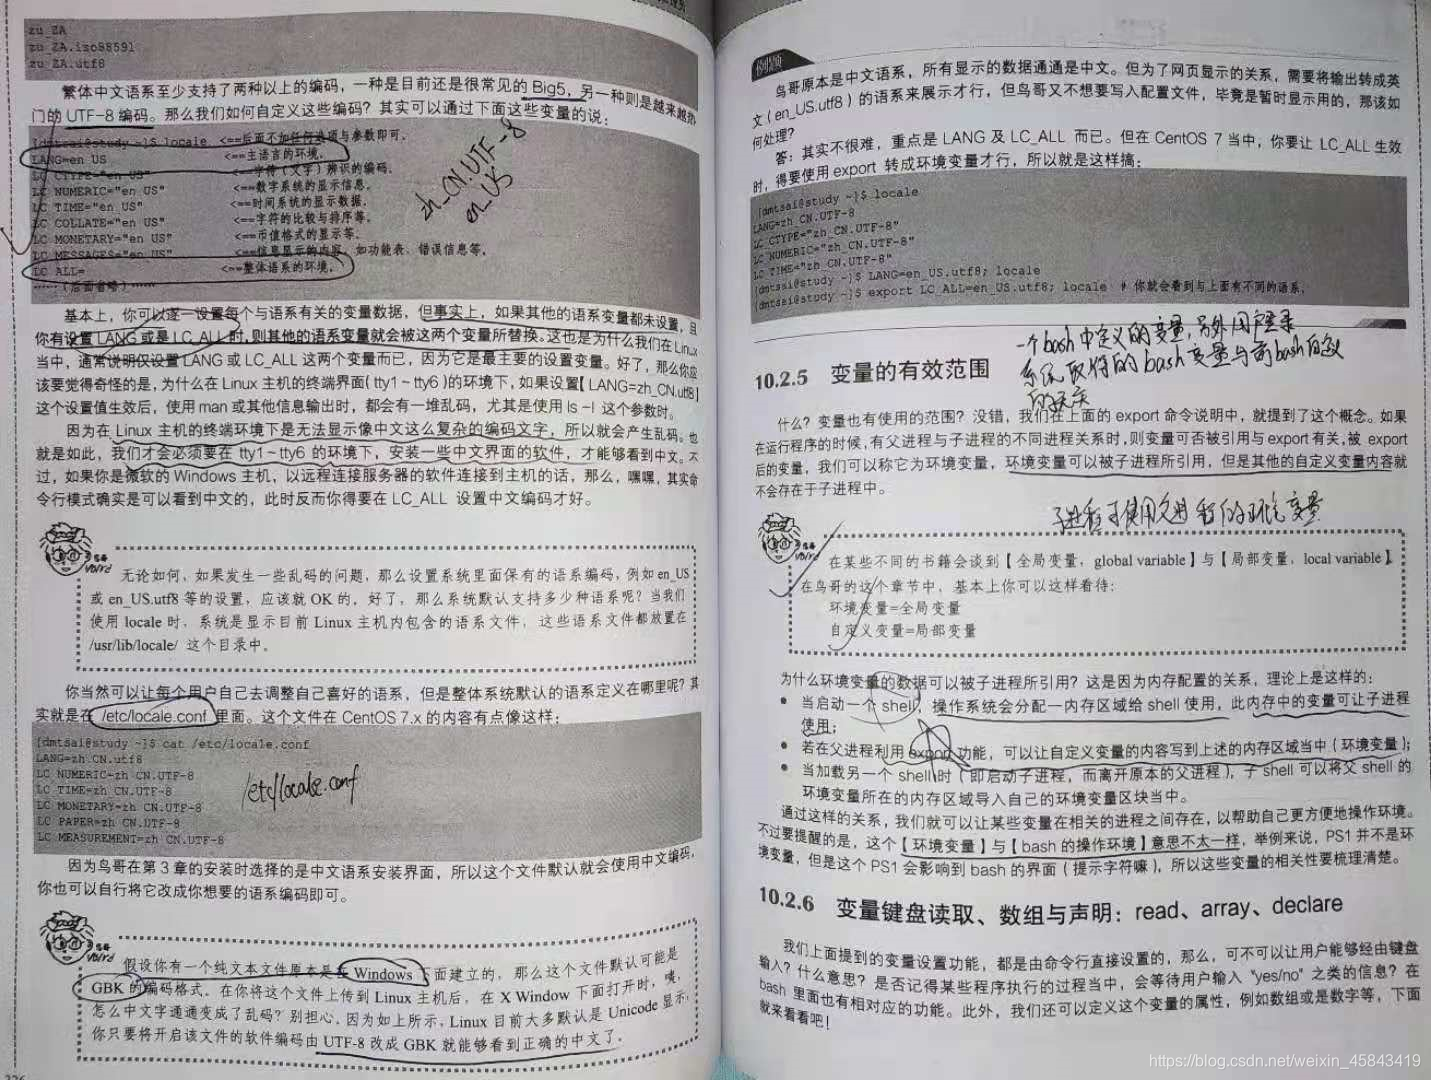 zu_ZA
zu_ZA.iso88591
zu_ZA.utf8
繁体中文语系至少支持了两种以上的编码，一种是目前还是很常见的 Big5，另一种则是越来越热
门的 UTF-8 编码。那么我们如何自定义这些编码？其实可以通过下面这些变量的说：
[dmtsai@study ~]$ locale <==后面不加任何选项与参数即可。
LANG=en_US <==主语言的环境。
LC_CTYPE="en_US" <==字符（文字）辨识的编码。
LC_NUMERIC="en_US" <==数字系统的显示信息。
LC_TIME="en_US" <==时间系统的显示数据。
LC_COLLATE="en_US" <==字符的比较与排序等。
LC_MONETARY="en_US" <==币值格式的显示等。
LC_MESSAGES="en_US" <==信息显示的内容，如功能表、错误信息等。
LC_ALL= <==整体语系的环境。
……（后面省略）……
zh_CN.UTF-8
en_US
基本上，你可以逐一设置每个与语系有关的变量数据，但事实上，如果其他的语系变量都未设置，且
你有设置 LANG 或是 LC_ALL 时，则其他的语系变量就会被这两个变量所替换。这也是为什么我们在 Linux
当中，通常说明仅设置 LANG 或 LC_ALL 这两个变量而已，因为它是最主要的设置变量。好了，那么你应
该要觉得奇怪的是，为什么在 Linux 主机的终端界面（tty1～tty6）的环境下，如果设置【LANG=zh_CN.utf8】
这个设置值生效后，使用 man 或其他信息输出时，都会有一堆乱码，尤其是使用 ls -l 这个参数时。
因为在 Linux 主机的终端环境下是无法显示像中文这么复杂的编码文字，所以就会产生乱码。也
就是如此，我们才会必须要在 tty1～tty6 的环境下，安装一些中文界面的软件，才能够看到中文。不
过，如果你是微软的 Windows 主机，以远程连接服务器的软件连接到主机的话，那么，嘿嘿，其实命
令行模式确实是可以看到中文的，此时反而你得要在 LC_ALL 设置中文编码才好。
无论如何，如果发生一些乱码的问题，那么设置系统里面保有的语系编码，例如 en_US
或 en_US.utf8 等的设置，应该就 OK 的。好了，那么系统默认支持多少种语系呢？当我们
使用 locale 时，系统是显示目前 Linux 主机内包含的语系文件，这些语系文件都放置在
/usr/lib/locale/ 这个目录中。
你当然可以让每个用户自己去调整自己喜好的语系，但是整体系统默认的语系定义在哪里呢？其
实就是在 /etc/locale.conf 里面。这个文件在 CentOS 7.x 的内容有点像这样：
[dmtsai@study ~]$ cat /etc/locale.conf
LANG=zh_CN.utf8
LC_NUMERIC=zh_CN.UTF-8
LC_TIME=zh_CN.UTF-8
LC_MONETARY=zh_CN.UTF-8
LC_PAPER=zh_CN.UTF-8
LC_MEASUREMENT=zh_CN.UTF-8
/etc/locale.conf
因为鸟哥在第 3 章的安装时选择的是中文语系安装界面，所以这个文件默认就会使用中文编码，
你也可以自行将它改成你想要的语系编码即可。
假设你有一个纯文本文件原本是在 Windows 下面建立的，那么这个文件默认可能是
GBK 的编码格式。在你将这个文件上传到 Linux 主机后，在 X Window 下面打开时，咦，
怎么中文字通通变成了乱码？别担心，因为如上所示，Linux 目前大多默认是 Unicode 显示，
你只要将开启该文件的软件编码由 UTF-8 改成 GBK 就能够看到正确的中文了。
326
例题
鸟哥原本是中文语系，所有显示的数据通通是中文。但为了网页显示的关系，需要将输出转成英
文（en_US.utf8）的语系来展示才行，但鸟哥又不想要写入配置文件，毕竟是暂时显示用的，那该如
何处理？
答：其实不很难，重点是 LANG 及 LC_ALL 而已。但在 CentOS 7 当中，你要让 LC_ALL 生效
时，得要使用 export 转成环境变量才行，所以就是这样搞：
[dmtsai@study ~]$ locale
LANG=zh_CN.UTF-8
LC_CTYPE="zh_CN.UTF-8"
LC_NUMERIC="zh_CN.UTF-8"
LC_TIME="zh_CN.UTF-8"
[dmtsai@study ~]$ LANG=en_US.utf8; locale
[dmtsai@study ~]$ export LC_ALL=en_US.utf8; locale # 你就会看到与上面有不同的语系。
一个bash中定义的变量，另外用户登录
系统取得的bash变量与前bash的定义
的无关
10.2.5 变量的有效范围
什么？变量也有使用的范围？没错，我们在上面的 export 命令说明中，就提到了这个概念。如果
在运行程序的时候，有父进程与子进程的不同进程关系时，则变量可否被引用与 export 有关，被 export
后的变量，我们可以称它为环境变量，环境变量可以被子进程所引用，但是其他的自定义变量内容就
不会存在于子进程中。
子进程可使用父进程的环境变量
在某些不同的书籍会谈到【全局变量，global variable】与【局部变量，local variable】，
在鸟哥的这个章节中，基本上你可以这样看待：
环境变量=全局变量
自定义变量=局部变量
为什么环境变量的数据可以被子进程所引用？这是因为内存配置的关系，理论上是这样的：
● 当启动一个 shell，操作系统会分配一内存区域给 shell 使用，此内存中的变量可让子进程
使用；
● 若在父进程利用 export 功能，可以让自定义变量的内容写到上述的内存区域当中（环境变量）；
● 当加载另一个 shell 时（即启动子进程，而离开原本的父进程），子 shell 可以将父 shell 的
环境变量所在的内存区域导入自己的环境变量区块当中。
通过这样的关系，我们就可以让某些变量在相关的进程之间存在，以帮助自己更方便地操作环境。
不过要提醒的是，这个【环境变量】与【bash 的操作环境】意思不太一样，举例来说，PS1 并不是环
境变量，但是这个 PS1 会影响到 bash 的界面（提示字符嘛），所以这些变量的相关性要梳理清楚。
10.2.6 变量键盘读取、数组与声明：read、array、declare
我们上面提到的变量设置功能，都是由命令行直接设置的，那么，可不可以让用户能够经由键盘
输入？什么意思？是否记得某些程序执行的过程当中，会等待用户输入 "yes/no" 之类的信息？在
bash 里面也有相对应的功能。此外，我们还可以定义这个变量的属性，例如数组或是数字等，下面
就来看看吧！
https://blog.csdn.net/weixin_45843419